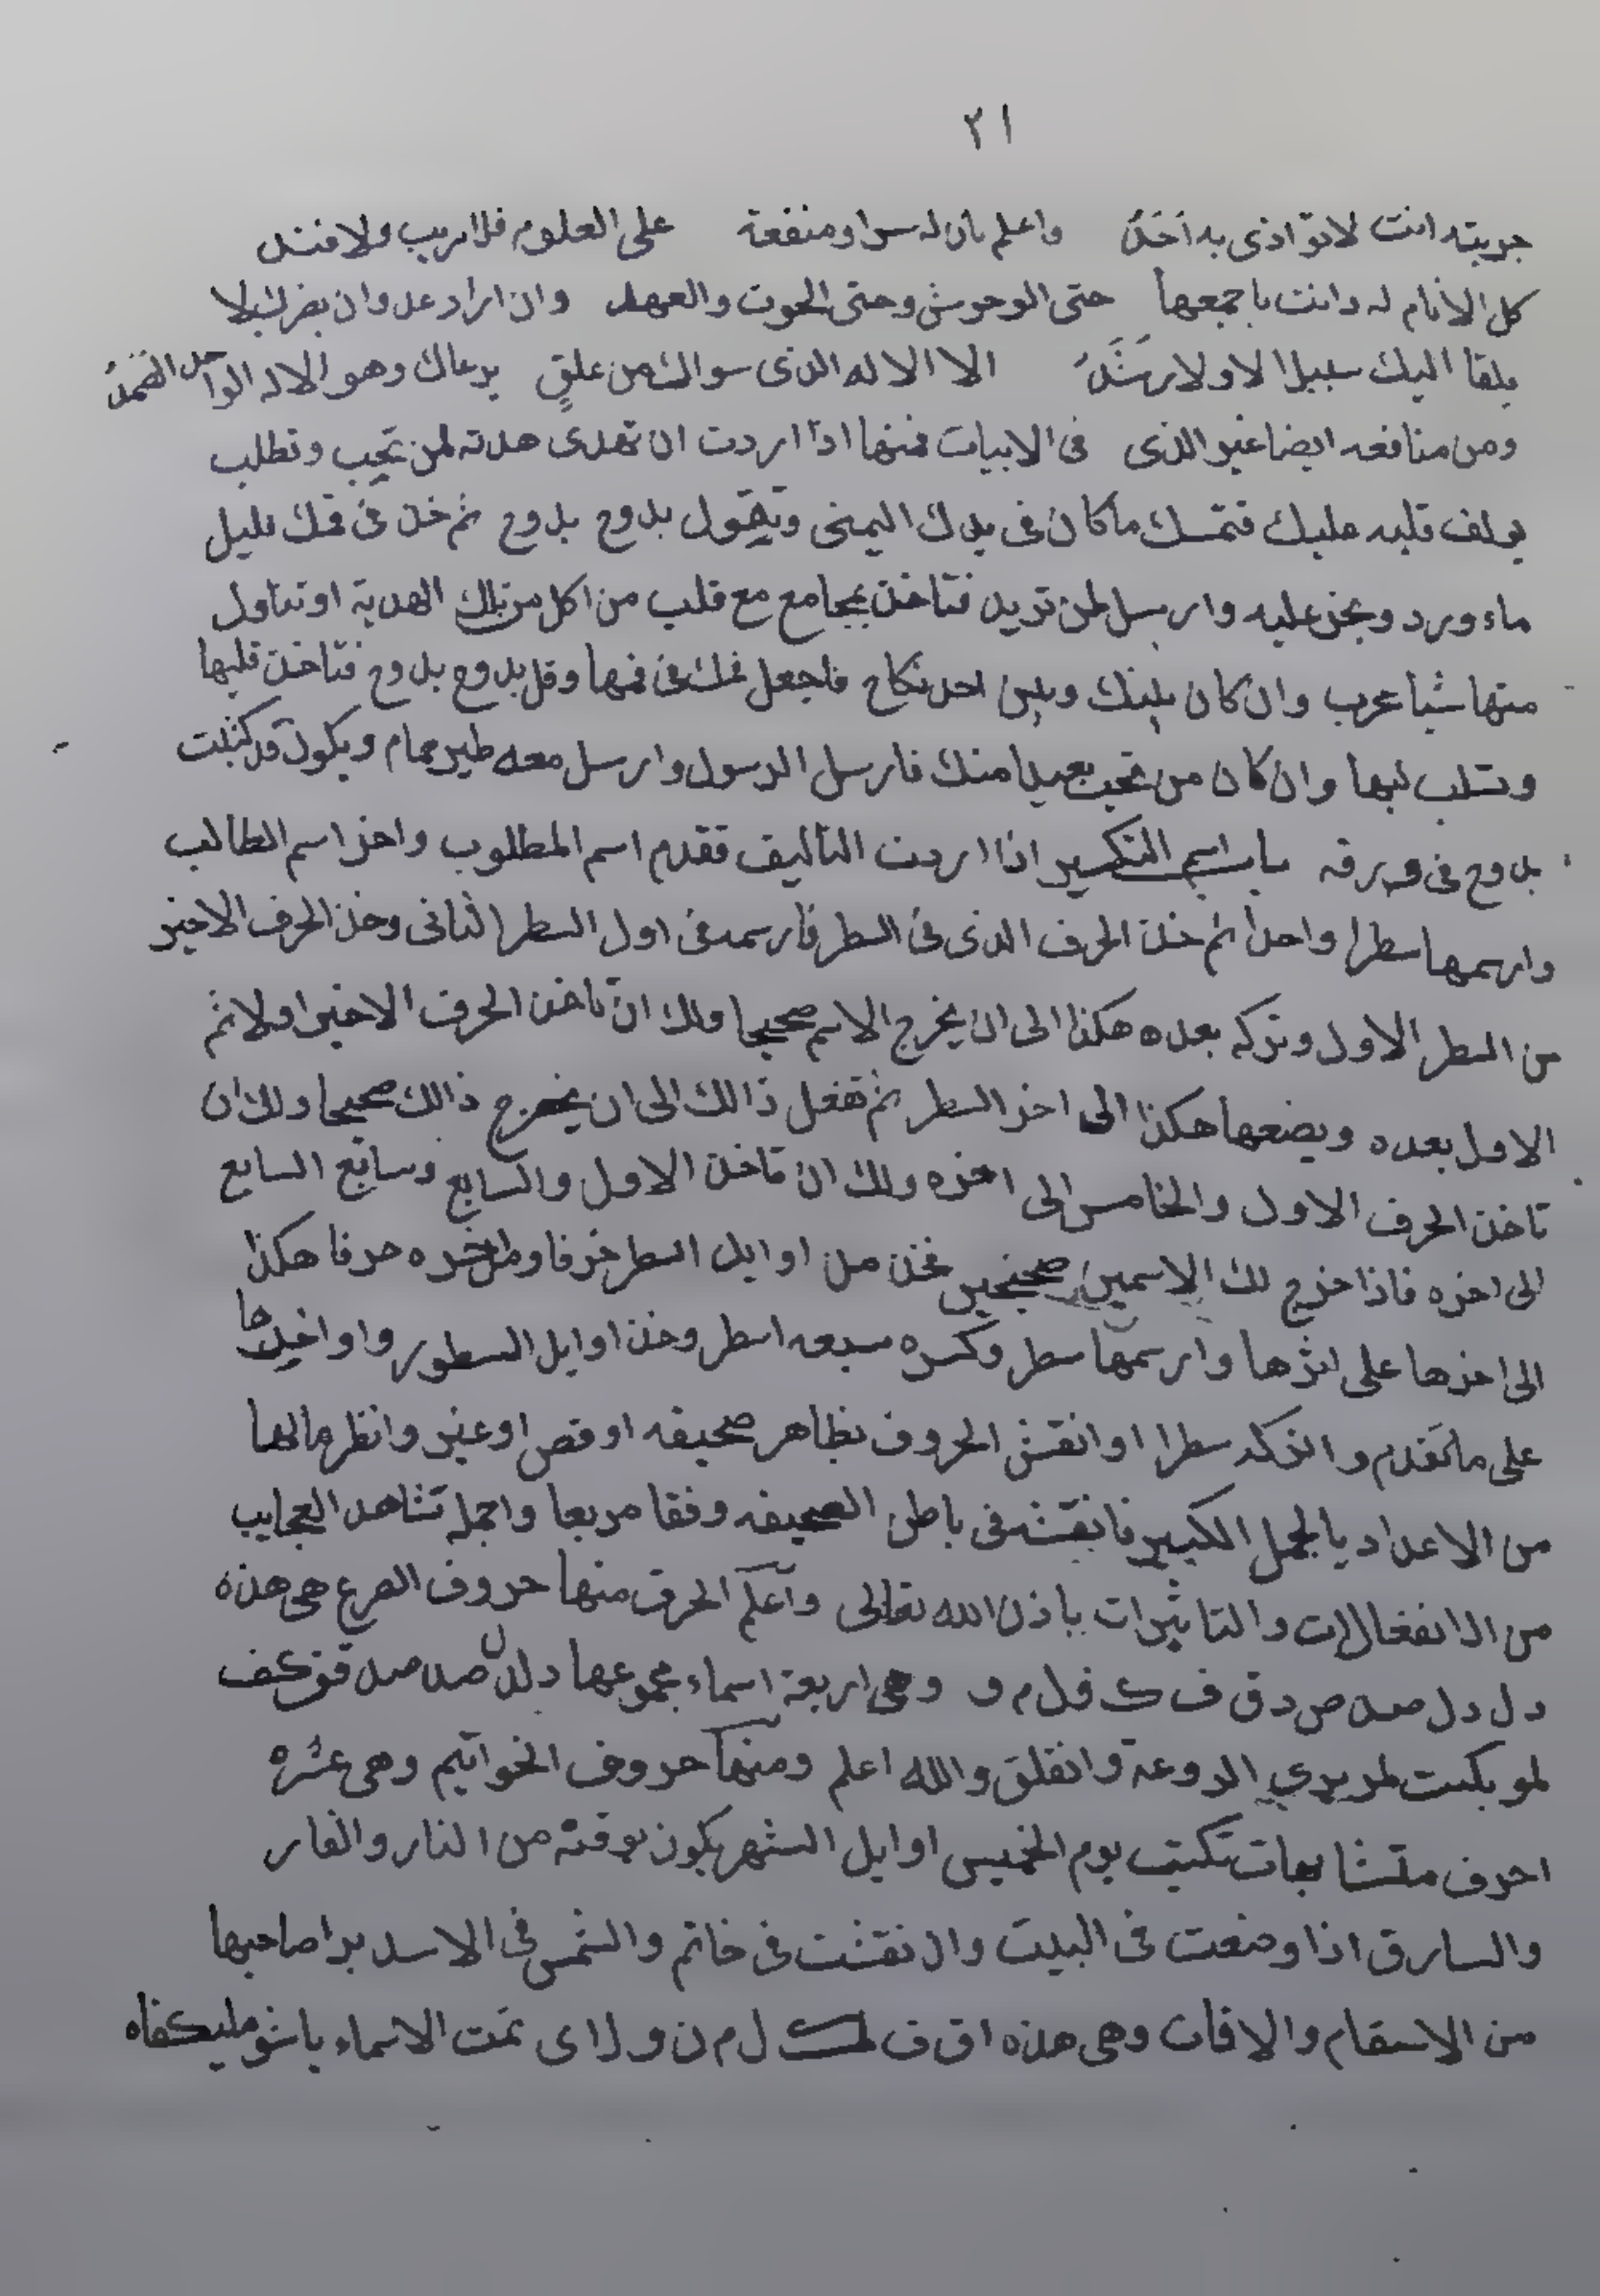 ٢١
جربته انت لا تؤاذى به احَدٌ واعلم بان له سرا ومنفعة على العلوم فلا ريب ولا فند
كل الانام له دانت باجمعها حتى الوحوش وحتى الحوت والعهد وان اراد عد وان يضرك بلا
يلقا اليك سبيلا لا ولا رشَدٌ الا الاله الذى سواك من علقٍ يرعاك وهو الاله الواحد الصَمدُ
ومن منافعه ايضا غير الذى فى الابيات فمنها اذا اردت ان تهدى هدته لمن تحب وتطلب
يولف قلبه عليك فتمسك ما كان فى يدك اليمنى وتقول بدوح بدوح ثم خذ فى فمك قليل
ماء ورد وبخ عليه وارسل لمن تريد فتاخذ بمجامع مع قلب من اكل من تلك الهدية او تناول
منها شيا عرب وان كان بينك وبين احد نكاح فاجعل فمك فى فمها وقل بدوح بدوح فتاخذ قلبها
وتسلب لبها وان كان من تحب بعيدا منك فارسل الرسول وارسل معه طير حمام ويكون قد كتبت
بدوح فى ورقه باب اسم التكسير اذا اردت التاليف فقدم اسم المطلوب واخر اسم الطالب
وارسمها سطرا واحدا ثم خذ الحرف الذى فى السطر فارسمه فى اول السطر الثانى وخذ الحرف الاخير
من السطر الاول وتركه بعده هكذا الى ان يخرج الاسم صحيحا ولك ان تاخذ الحرف الاخير اولا ثم
الاول بعده ويضعها هكذا الى اخر السطر ثم تفعل ذالك الى ان يخرج ذالك صحيحا ولك ان
تاخذ الحرف الاول والخامس الى اخره ولك ان تاخذ الاول والسابع وسابع السابع
الى اخره فاذا خرج لك الاسمين صحيحين فخذ من اوايل السطر حرفا ومن اخره حرفا هكذا
الى اخرها على اثرها وارسمها سطر وكسره سبعه اسطر وخذ اوايل السطور واواخيرها
على ما تقدم واتركه سطرا او انقش الحروف بظاهر صحيفه او فص او غير وانظر مالها
من الاعداد بالجمل الكبير فانقشه فى باطن الصحيفه وفقا مربعا واحمله تشاهد العجايب
من الانفعالات والتاثيرات باذن الله تعالى واعلم الحرف منها حروف الصرع هى هذه
د ل د ل صد ص د ق ف ك ف ل م و وهى اربعة اسماء مجموعها دلدل صد صد قفكف
لمو يكتب لمريري الروعة وانفلق والله اعلم ومنها حروف الخواتيم وهى عشره
احرف متشابهات تكتب يوم الخميس اوايل الشهر يكون بوقته من النار والفار
والسارق اذا وضعت فى البيت وان نقشت فى خاتم والشمس فى الاسد برا صاحبها
من الاسقام والافات وهى هذه ا ق ف ك ل م ن و ل ا ى تمت الاسماء